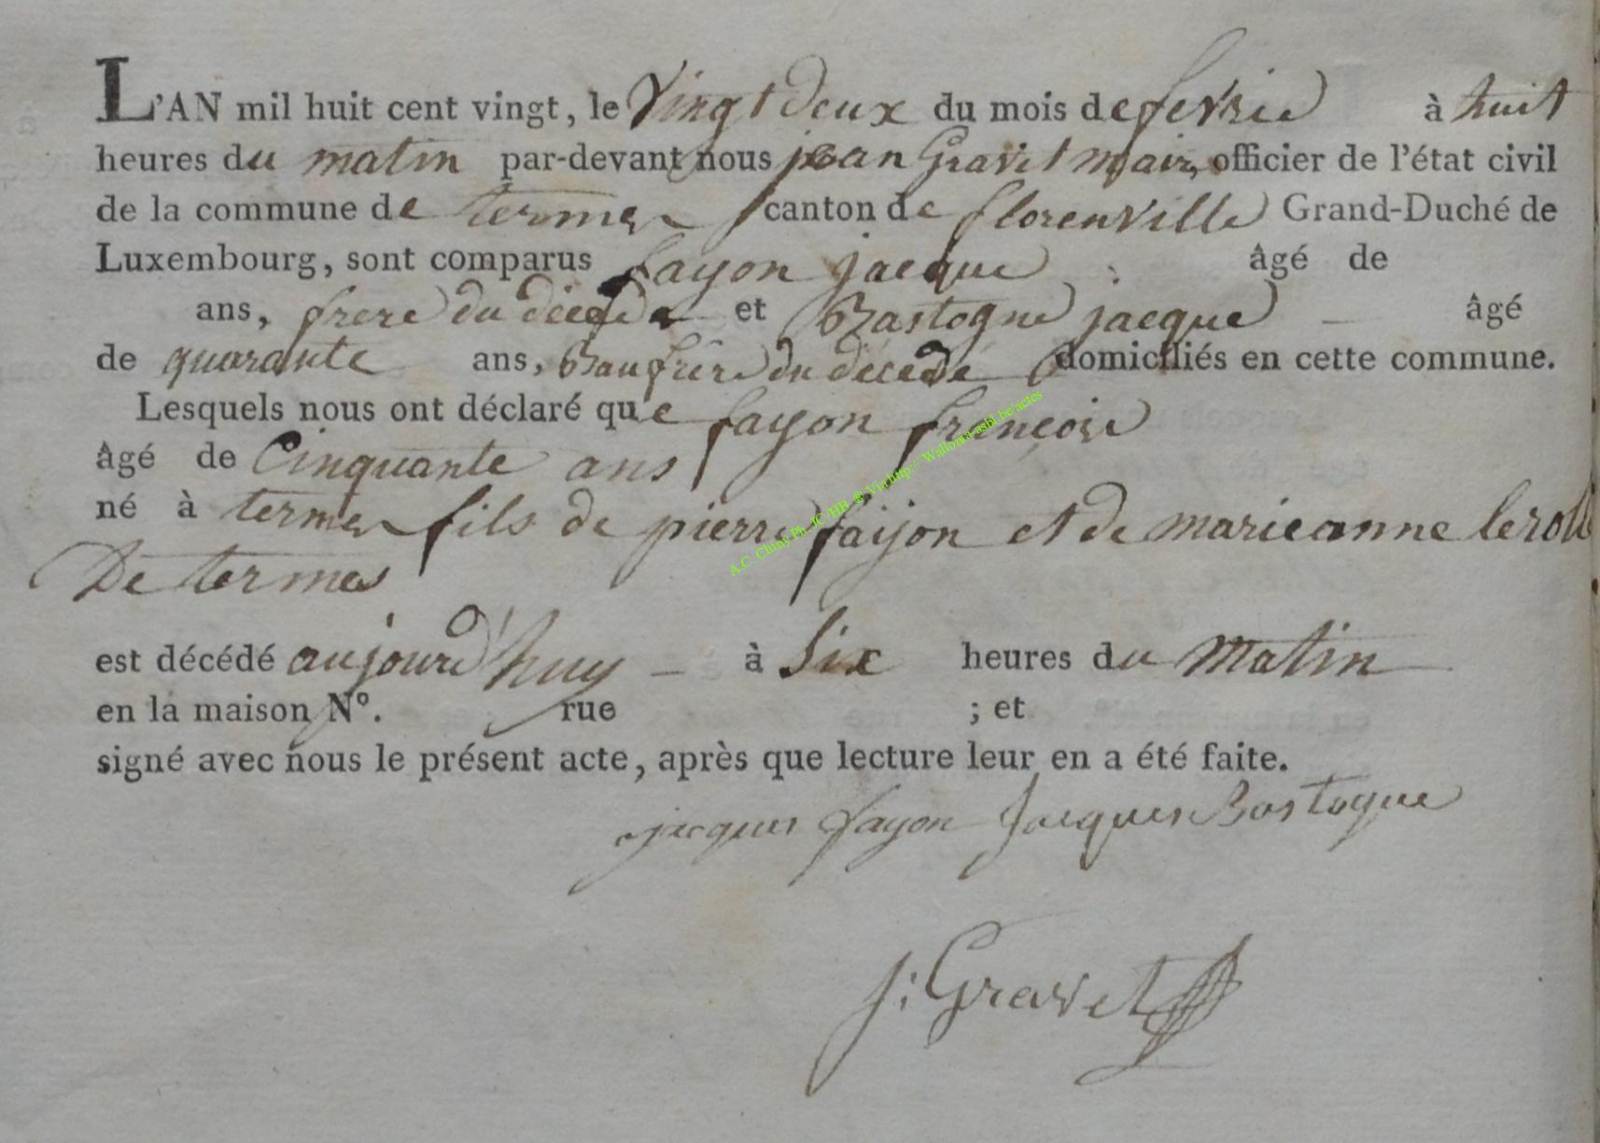 L'AN mil huit cent vingt, le vingt deux du mois de fevrie à huit
heures du matin par-devant nous jean Gravet maire officier de l'état civil
de la commune de termes canton de florenville Grand-Duché de
Luxembourg, sont comparus fayon jacque âgé de
ans, frere du décédé et Bastogne jacque âgé
de quarante ans, Baufrêre du décédé domiciliés en cette commune.
Lesquels nous ont déclaré que fayon françois
âgé de Cinquante ans
né à termes fils de pierre faijon et de marieanne
De termes
est décédé aujourd'huy à Six heures du matin
en la maison N°. rue ; et
signé avec nous le présent acte, après que lecture leur en a été faite.
jacques fayon Jacques Bastogne
j: Gravet
A.C. Chiny Ph. JC HB @ Via http: